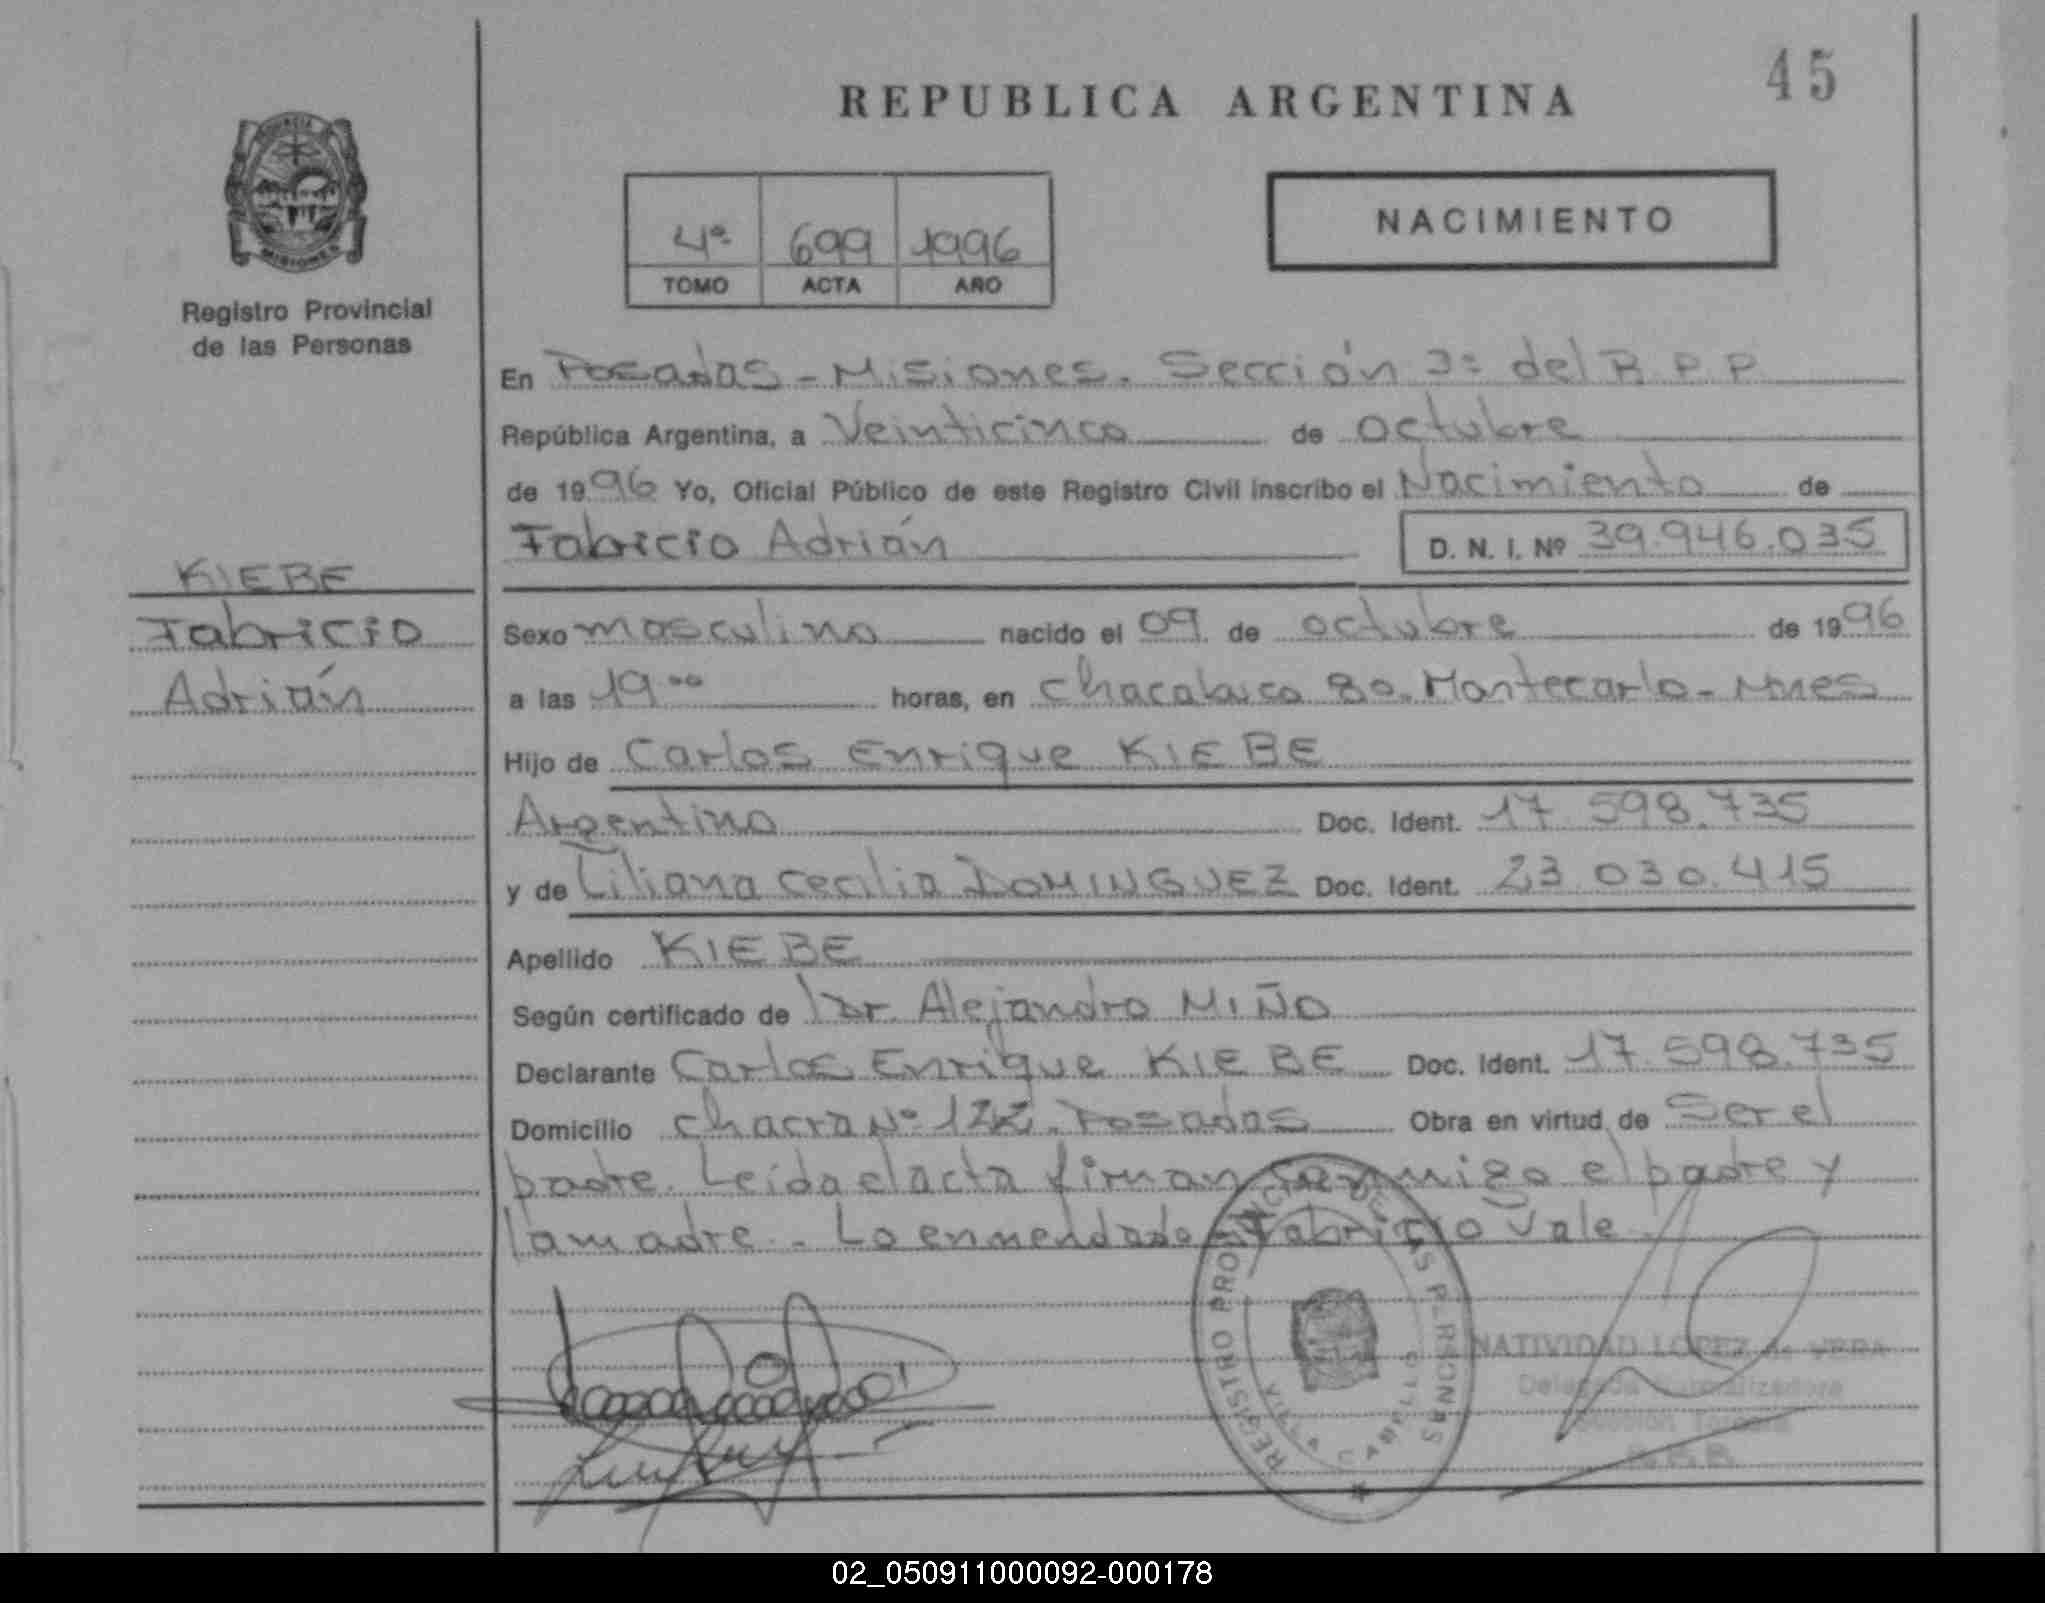 45
REPUBLICA ARGENTINA
NACIMIENTO
4º 699 1996
TOMO ACTA AÑO
MISIONES
Registro Provincial
de las Personas
En Posadas - Misiones. Sección 3ª del R.P.P
República Argentina, a Veinticinco de octubre
de 1996 Yo, Oficial Público de este Registro Civil inscribo el Nacimiento de
Fabricio Adrián D. N. I. Nº 39.946.035
KIEBE
Fabricio
Adrián
Sexo masculino nacido el 09 de octubre de 1996
a las 19ºº horas, en Chacabuco 80. Montecarlo - Mnes
Hijo de Carlos Enrique KIEBE
Argentino Doc. Ident. 17.598.735
y de Liliana Cecilia DOMINGUEZ Doc. Ident. 23.030.415
Apellido KIEBE
Según certificado de Dr. Alejandro MIÑO
Declarante Carlos Enrique KIEBE Doc. Ident. 17.598.735
Domicilio chacra Nº Posadas Obra en virtud de Ser el
padre. Leída el acta firman conmigo el padre y
la madre. - Lo enmendado Fabricio Vale.
REGISTRO PROVINCIAL DE LAS PERSONAS
VILLA CABELLO
NATIVIDAD LOPEZ de VERA
Delegada Normalizadora
Sección Tercera
R.P.P.
02_050911000092-000178